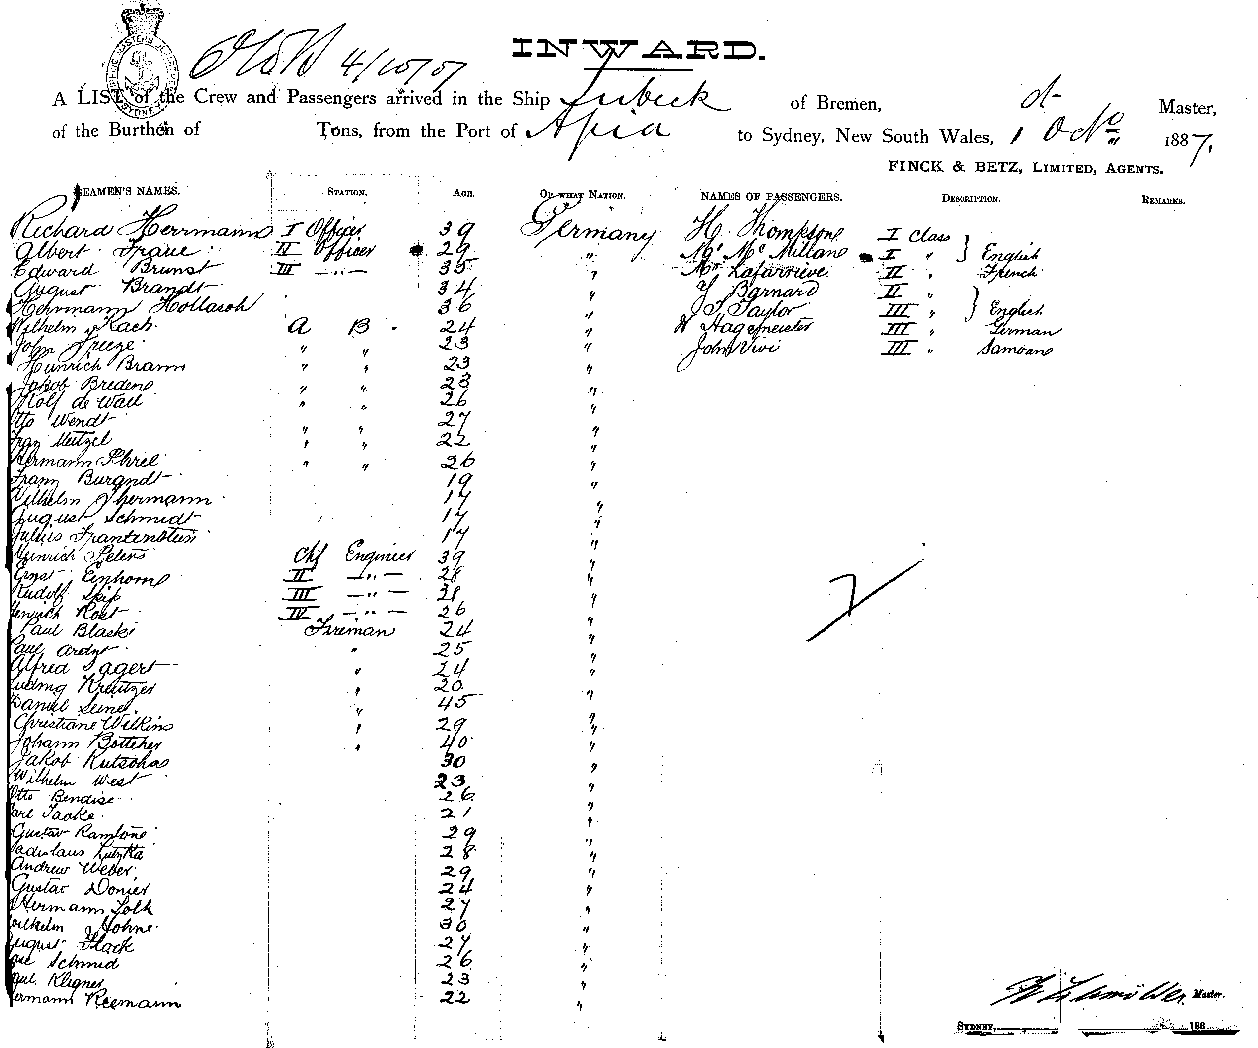 4/10/87
INWARD.
A LIST of the Crew and Passengers arrived in the Ship Lübeck of Bremen, Master,
of the Burthen of Tons, from the Port of Apia to Sydney, New South Wales, 1 Octo 1887.
FINCK & BETZ, LIMITED, AGENTS.
SEAMEN'S NAMES. STATION. AGE. OF WHAT NATION. NAMES OF PASSENGERS. DESCRIPTION. REMARKS.
Richard Herrmann I Officer 39 Germany H. Thompson I Class
Albert II Officer 29 " Mc Millan I " English
Edward Brunst III —"— 35 " Mr Lafarrieve II " French
August Brandt 34 " Barnard II "
Herrmann Hollasch 36 " Taylor III " English
Wilhelm A B. 24 " Hagemeister III " German
John " " 23 " John Vivi III " Samoan
Heinrich Bramm " " 23 "
Jakob Bredens " " 28 "
Rolf de Wall " " 26 "
Otto Wendt 27 "
Franz " " 22 "
Hermann " " 26 "
Franz Burgndt " " 19 "
Wilhelm 17
August Schmidt 17 "
Julius Frankenstein 17 "
Heinrich Peters Chf Engineer 39 "
Ernst Einhorn II —"— 28 "
Rudolf III —"— 31 "
Henrich Rost IV —"— 26 "
Paul Blaski Fireman 24 "
Paul " 25 "
Alfred Sagert " 24 "
Ludwig Kreutzer " 20 "
Daniel " 45 "
Christiane Wilkins " 29 "
Johann Bottcher " 40 "
Jakob Kutschas 30 "
Wilhelm West 23 "
Otto Bendise 26 "
Carl Taake 21 "
Gustav 29 "
Ladislaus 28 "
Andrew Weber 29 "
Gustav Donier 24 "
Hermann 27 "
Wilhelm 30 "
August 27 "
Schmid 26 "
23 "
Hermann Reemann 22 "
Master.
SYDNEY, 188